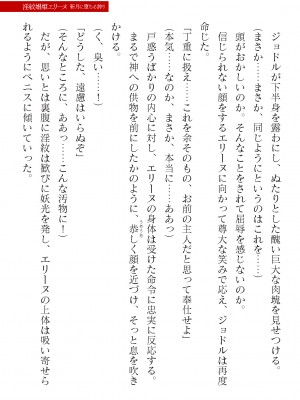 淫紋娼姫エリーヌ 新月に堕ちる誇り
ジョドルが下半身を露わにし、ぬたりとした醜い巨大な肉塊を見せつける。
(まさか……まさか、同じようにというのはこれを……)
頭がおかしいのか。そんなことをさせて屈辱を感じないのか。
信じられない顔をするエリーヌに向かって尊大な笑みで応え、ジョドルは再度
命じた。
「丁重に扱え……これを余そのもの、お前の主人だと思って奉仕せよ」
(本気……なのか、まさか、本当に……ああっ)
戸惑うばかりの内心に対し、エリーヌの身体は受けた命令に忠実に反応する。
まるで神への供物を前にしたかのように、恭しく顔を近づけ、そっと息を吹き
かける。
(く、臭い……！)
「どうした、遠慮はいらぬぞ」
(そんなところに、ああっ……こんな汚物に！)
だが、思いとは裏腹に淫紋は歓びに妖光を発し、エリーヌの上体は吸い寄せら
れるようにペニスに傾いていった。